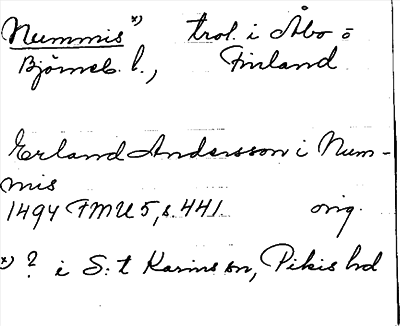 Nummis x) trol. i Åbo o
Björneb. l., Finland
Erland Andersson i Num-
mis
1494 FMU 5, s. 441. orig.
x) ? i S:t Karins sn, Pikis hd